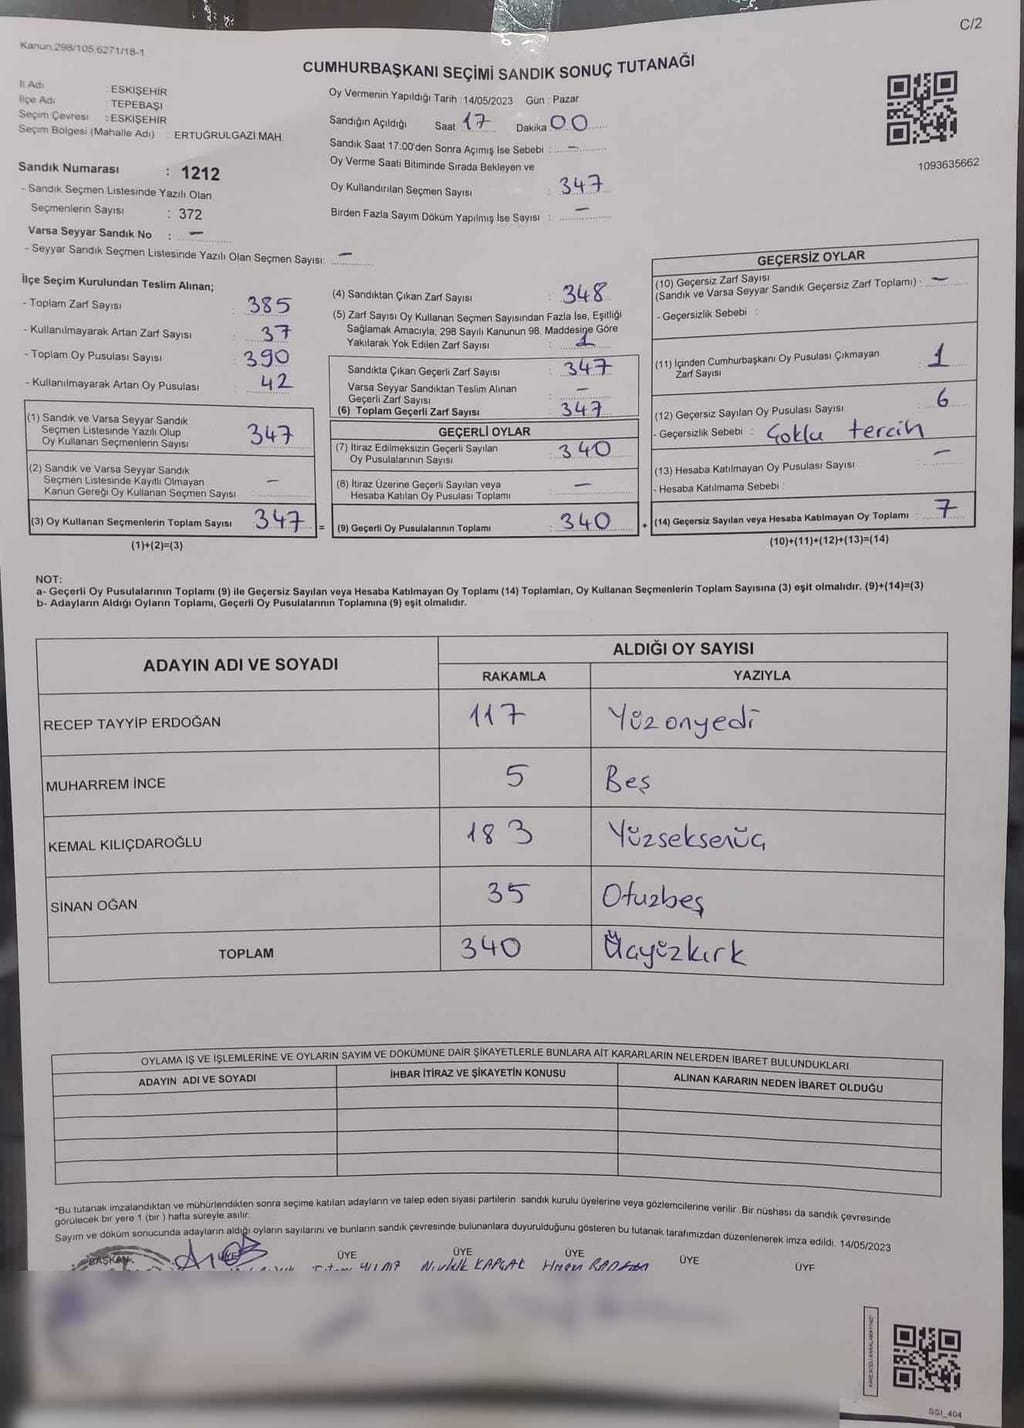 C/2
Kanun.298/105.6271/18-1
CUMHURBAŞKANI SEÇİMİ SANDIK SONUÇ TUTANAĞI
İl Adı : ESKİŞEHİR
İlçe Adı : TEPEBAŞI
Seçim Çevresi : ESKİŞEHİR
Seçim Bölgesi (Mahalle Adı) : ERTUĞRULGAZİ MAH.
Sandık Numarası : 1212
- Sandık Seçmen Listesinde Yazılı Olan
Seçmenlerin Sayısı : 372
Varsa Seyyar Sandık No : -
- Seyyar Sandık Seçmen Listesinde Yazılı Olan Seçmen Sayısı: -
Oy Vermenin Yapıldığı Tarih : 14/05/2023 Gün : Pazar
Sandığın Açıldığı Saat 17 Dakika 00
Sandık Saat 17:00'den Sonra Açımış İse Sebebi : -
Oy Verme Saati Bitiminde Sırada Bekleyen ve
Oy Kullandırılan Seçmen Sayısı : 347
Birden Fazla Sayım Döküm Yapılmış İse Sayısı : -
1093635662
İlçe Seçim Kurulundan Teslim Alınan;
- Toplam Zarf Sayısı : 385
- Kullanılmayarak Artan Zarf Sayısı : 37
- Toplam Oy Pusulası Sayısı : 390
- Kullanılmayarak Artan Oy Pusulası : 42
(1) Sandık ve Varsa Seyyar Sandık
Seçmen Listesinde Yazılı Olup
Oy Kullanan Seçmenlerin Sayısı 347
(2) Sandık ve Varsa Seyyar Sandık
Seçmen Listesinde Kayıtlı Olmayan
Kanun Gereği Oy Kullanan Seçmen Sayısı : -
(3) Oy Kullanan Seçmenlerin Toplam Sayısı 347 =
(1)+(2)=(3)
(4) Sandıktan Çıkan Zarf Sayısı : 348
(5) Zarf Sayısı Oy Kullanan Seçmen Sayısından Fazla İse, Eşitliği
Sağlamak Amacıyla; 298 Sayılı Kanunun 98. Maddesine Göre
Yakılarak Yok Edilen Zarf Sayısı : 1
Sandıkta Çıkan Geçerli Zarf Sayısı : 347
Varsa Seyyar Sandıktan Teslim Alınan
Geçerli Zarf Sayısı : -
(6) Toplam Geçerli Zarf Sayısı 347
GEÇERLİ OYLAR
(7) İtiraz Edilmeksizin Geçerli Sayılan
Oy Pusulalarının Sayısı : 340
(8) İtiraz Üzerine Geçerli Sayılan veya
Hesaba Katılan Oy Pusulası Toplamı : -
(9) Geçerli Oy Pusulalarının Toplamı : 340 +
GEÇERSİZ OYLAR
(10) Geçersiz Zarf Sayısı
(Sandık ve Varsa Seyyar Sandık Geçersiz Zarf Toplamı) : -
- Geçersizlik Sebebi :
(11) İçinden Cumhurbaşkanı Oy Pusulası Çıkmayan
Zarf Sayısı 1
(12) Geçersiz Sayılan Oy Pusulası Sayısı 6
- Geçersizlik Sebebi : Çoklu tercih
(13) Hesaba Katılmayan Oy Pusulası Sayısı -
- Hesaba Katılmama Sebebi :
(14) Geçersiz Sayılan veya Hesaba Katılmayan Oy Toplamı : 7
(10)+(11)+(12)+(13)=(14)
NOT:
a- Geçerli Oy Pusulalarının Toplamı (9) ile Geçersiz Sayılan veya Hesaba Katılmayan Oy Toplamı (14) Toplamları, Oy Kullanan Seçmenlerin Toplam Sayısına (3) eşit olmalıdır. (9)+(14)=(3)
b- Adayların Aldığı Oyların Toplamı, Geçerli Oy Pusulalarının Toplamına (9) eşit olmalıdır.
ADAYIN ADI VE SOYADI
ALDIĞI OY SAYISI
RAKAMLA YAZIYLA
RECEP TAYYİP ERDOĞAN 117 Yüzonyedi
MUHARREM İNCE 5 Beş
KEMAL KILIÇDAROĞLU 183 Yüzseksenüç
SİNAN OĞAN 35 Otuzbeş
TOPLAM 340 Üçyüzkırk
OYLAMA İŞ VE İŞLEMLERİNE VE OYLARIN SAYIM VE DÖKÜMÜNE DAİR ŞİKAYETLERLE BUNLARA AİT KARARLARIN NELERDEN İBARET BULUNDUKLARI
ADAYIN ADI VE SOYADI İHBAR İTİRAZ VE ŞİKAYETİN KONUSU ALINAN KARARIN NEDEN İBARET OLDUĞU
*Bu tutanak imzalandıktan ve mühürlendikten sonra seçime katılan adayların ve talep eden siyasi partilerin sandık kurulu üyelerine veya gözlemcilerine verilir. Bir nüshası da sandık çevresinde
görülecek bir yere 1 (bir ) hafta süreyle asılır.
Sayım ve döküm sonucunda adayların aldığı oyların sayılarını ve bunların sandık çevresinde bulunanlara duyurulduğunu gösteren bu tutanak tarafımızdan düzenlenerek imza edildi. 14/05/2023
BAŞKAN ÜYE ÜYE ÜYE ÜYE ÜYE ÜYE
SSI_404